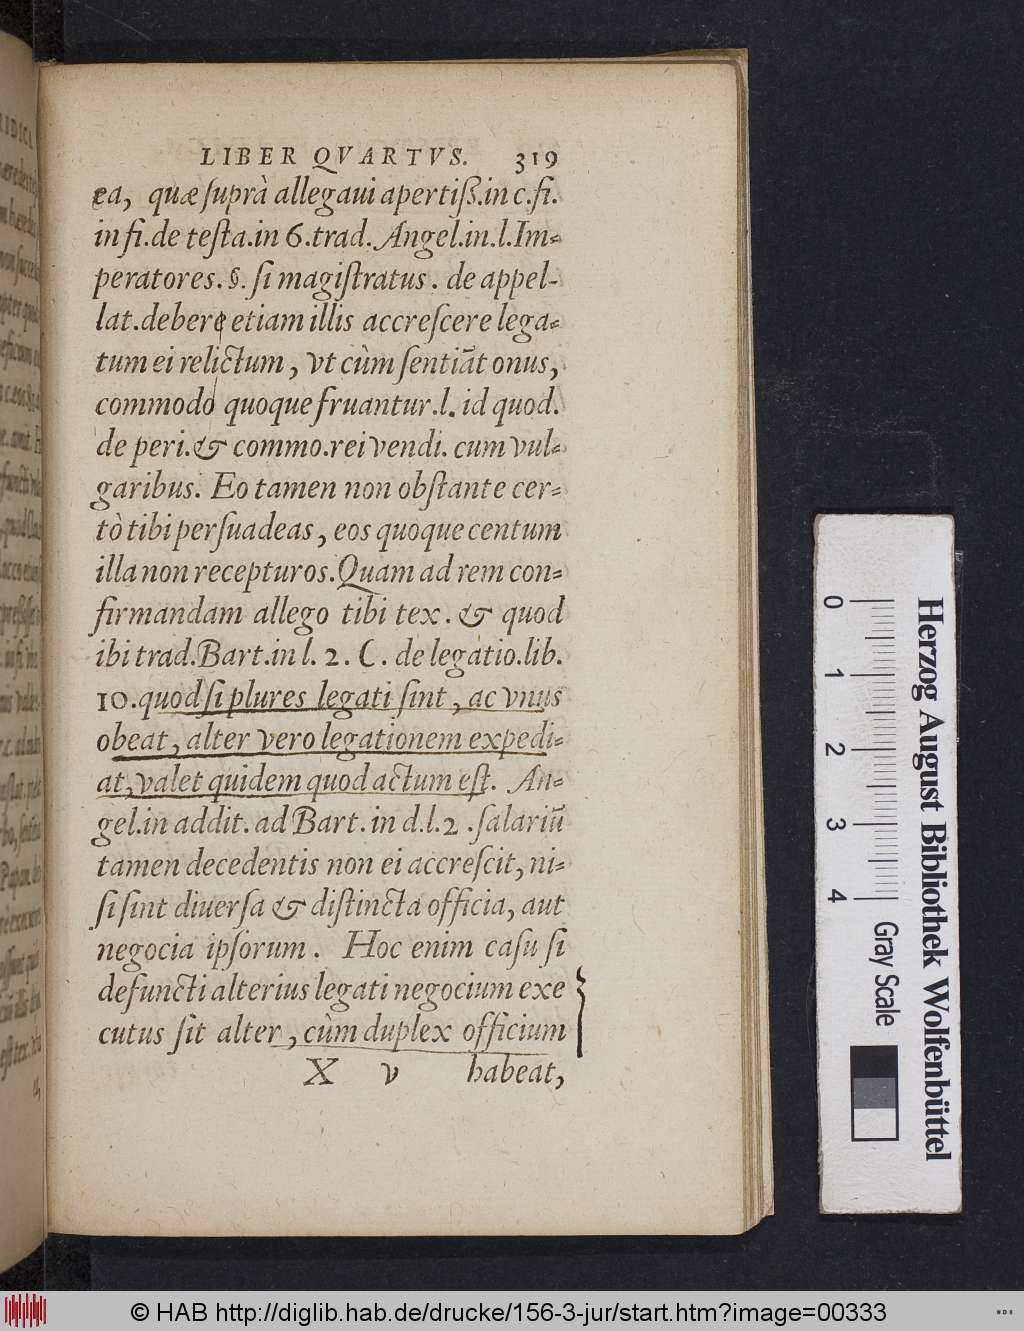 LIBER QVARTVS. 319
ea, quæ ſuprà allegaui apertiß.in c.fi.
in fi.de teſta.in 6.trad. Angel.in.l.Im-
peratores.§. ſi magiſtratus. de appel-
lat.debere etiam illis accreſcere lega-
tum ei relictum, vt cùm ſentiãt onus,
commodo quoque fruantur.l. id quod.
de peri.& commo.rei vendi. cum vul-
garibus. Eo tamen non obſtante cer-
tò tibi perſuadeas, eos quoque centum
illa non recepturos. Quam ad rem con-
firmandam allego tibi tex. & quod
ibi trad. Bart.in l. 2. C. de legatio.lib.
10.quod ſi plures legati ſint, ac vnus
obeat, alter vero legationem expedi-
at, valet quidem quod actum eſt. An-
gel.in addit. ad Bart. in d.l.2 .ſalariũ
tamen decedentis non ei accreſcit, ni-
ſi ſint diuerſa & diſtincta officia, aut
negocia ipſorum. Hoc enim caſu ſi
defuncti alterius legati negocium exe
cutus ſit alter, cùm duplex officium
X v habeat,
0 1 2 3 4
Gray Scale
Herzog August Bibliothek Wolfenbüttel
© HAB http://diglib.hab.de/drucke/156-3-jur/start.htm?image=00333